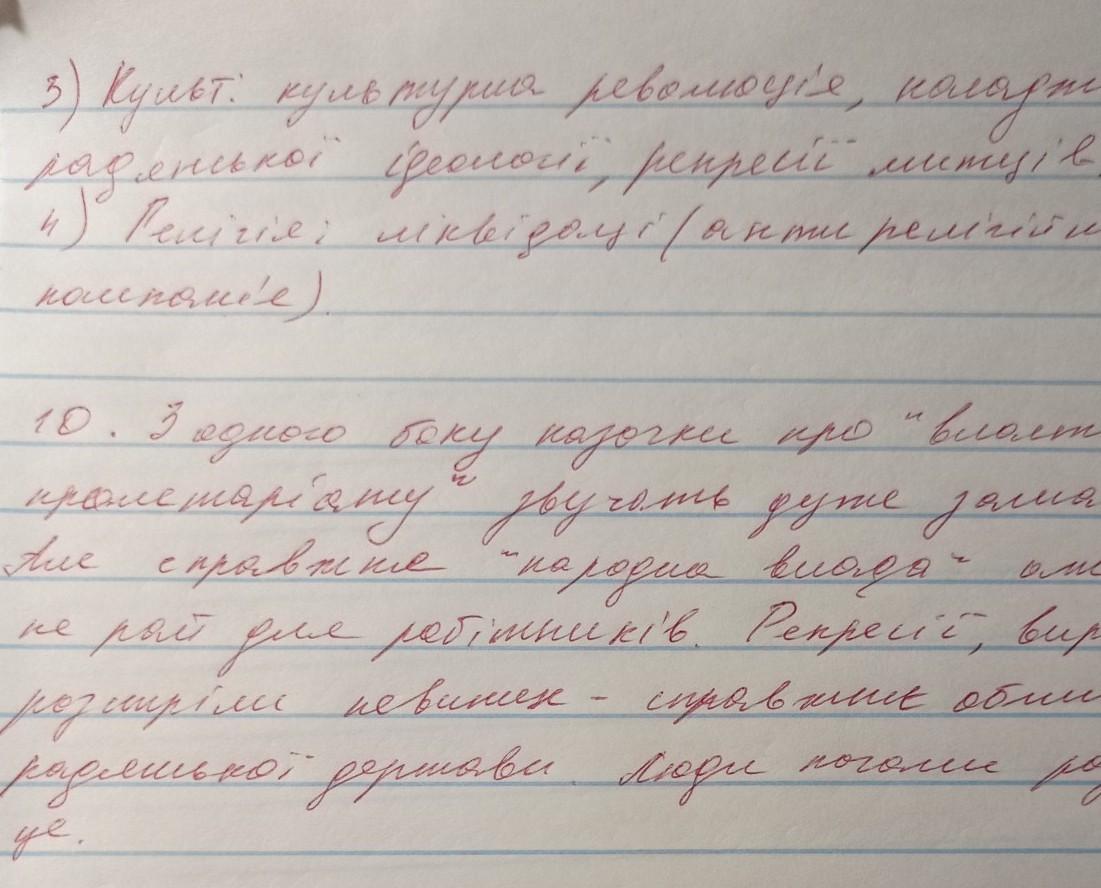 3) Культ: культурна революція, насадж
радянської ідеології, репресії митців.
4) Релігія: ліквідації (антирелігійн
кампанія).
10. З одного боку казочки про "власт
пролетаріату" звучать дуже зама
Але справжня "народна влада" аж
не рай для робітників. Репресії, вир
розстріли невинних - справжнє обли
радянської держави. Люди почали ро
це.